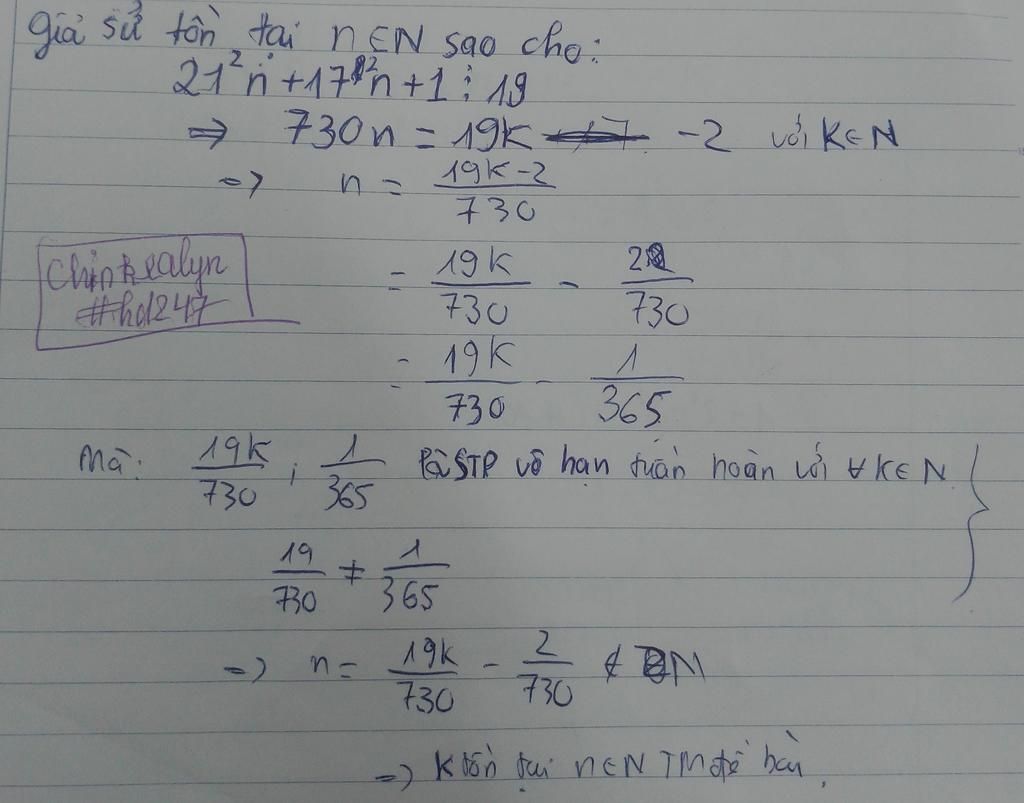 Giả sử tồn tại n ∈ N sao cho:
21²n + 17²n + 1 ⋮ 19
=> 730n = 19K - 2 với K ∈ N
=> n = (19K - 2)/730
= 19K/730 - 2/730
Chin Realyn
#hd247
= 19K/730 - 1/365
Mà: 19K/730 ; 1/365 là STP vô hạn tuần hoàn với ∀ K ∈ N
19/730 ≠ 1/365
=> n = 19K/730 - 2/730 ∉ N
=> K tồn tại n ∈ N TM đề bài.